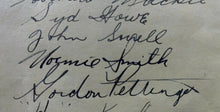 Mackie
Syd Howe
John Sorrell
Normie Smith
Gordon Pettinger